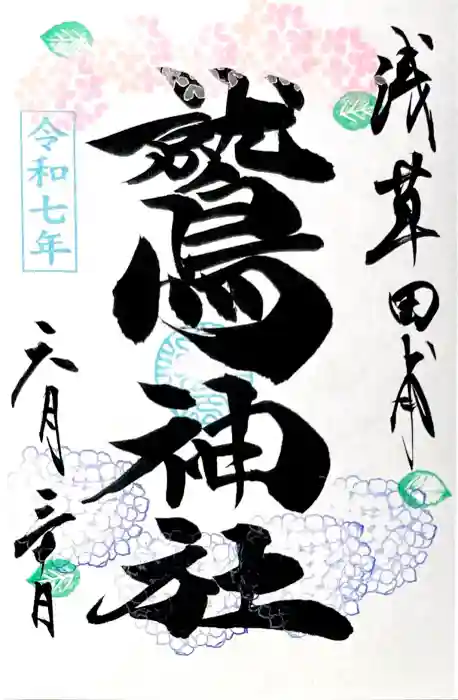 浅草田甫
鷲神社
令和七年
六月三十日